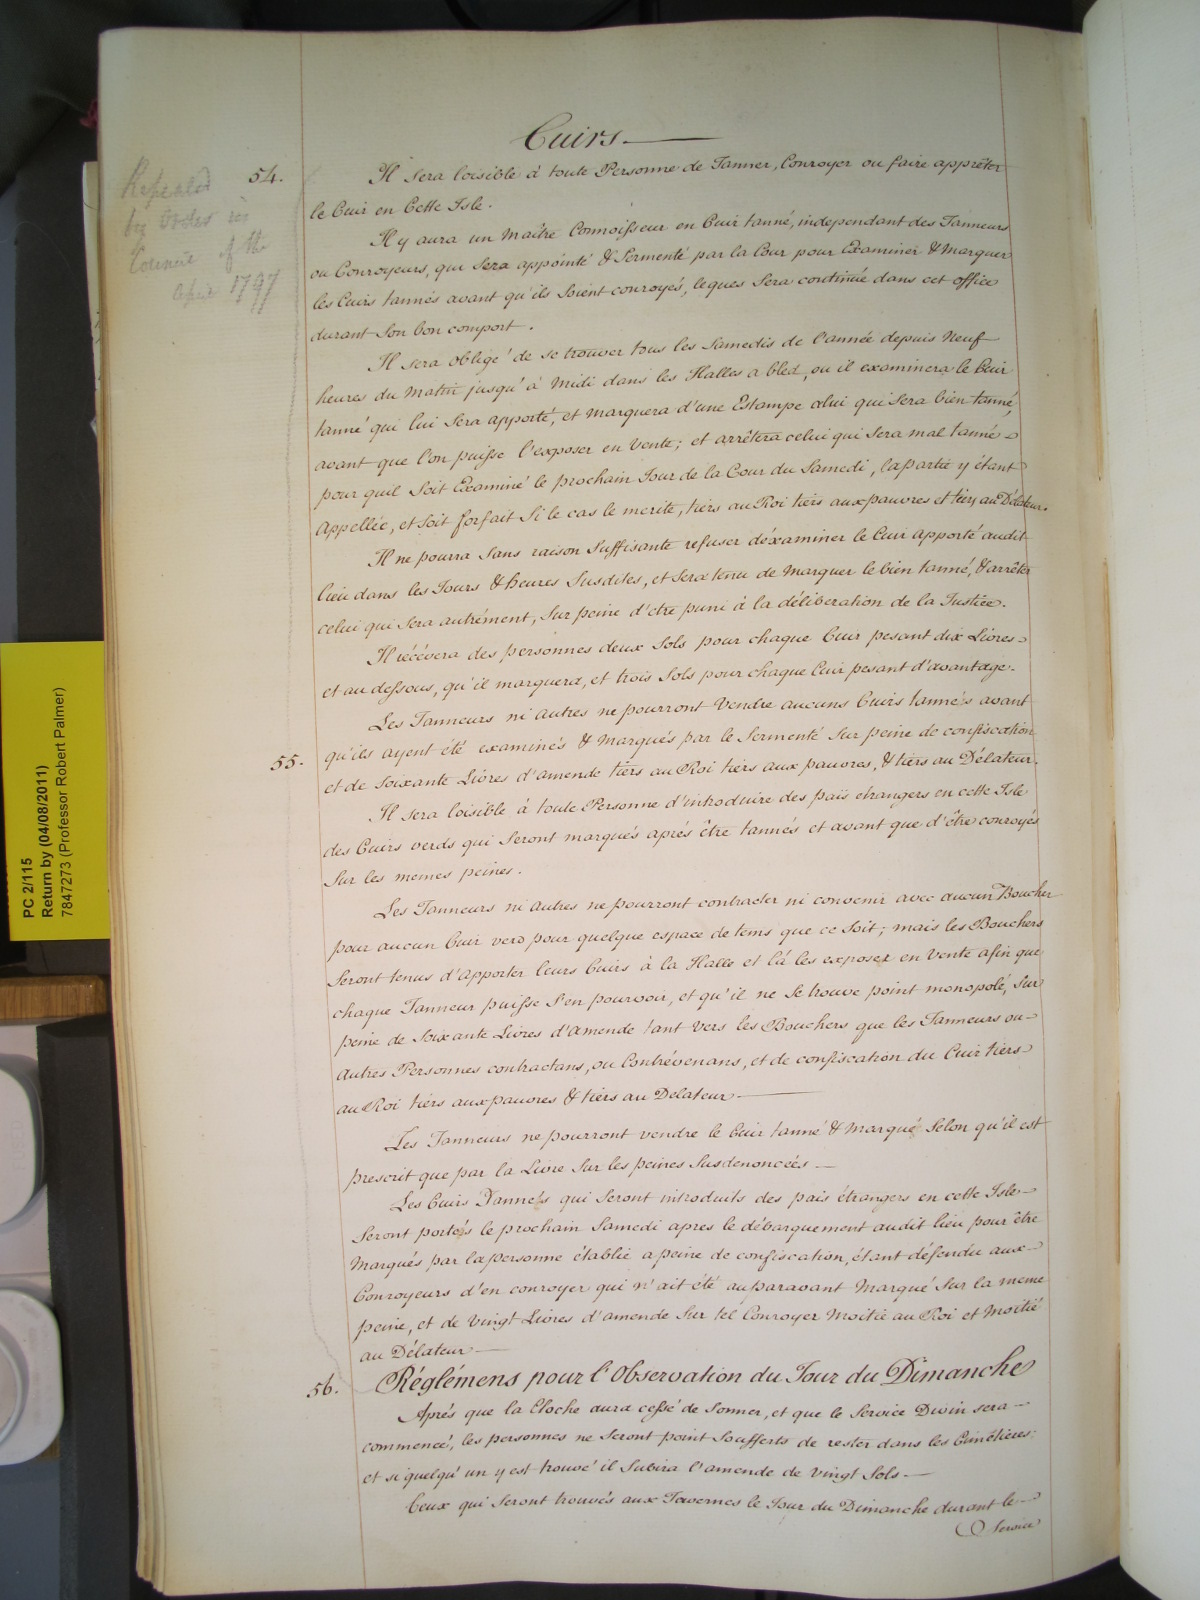 Cuirs.
Repealed
by Order in
Council of the
1797
54.
Il sera loisible à toute Personne de Tanner, Conroyer ou faire apprêter
le Cuir en Cette Isle.
Il y aura un Maître Connoisseur en Cuir tanné, independant des Tanneurs
ou Conroyeurs, qui sera appointé & Sermenté par la Cour pour Examiner & Marquer
les Cuirs tannés avant qu'ils soient conroyés, leques sera continué dans cet office
durant son bon comport.
Il sera obligé de se trouver tous les Samedis de l'année depuis Neuf
heures du Matin jusqu'à Midi dans les Halles a bled, ou il examinera le Cuir
tanné qui lui sera apporté, et marquera d'une Estampe celui qui sera bien tanné,
avant que l'on puisse l'exposer en Vente; et arrêtera celui qui sera mal tanné
pour quil soit Examiné le prochain Jour de la Cour du Samedi, la partie y étant
appellée, et soit forfait si le cas le merite, tiers au Roi tiers aux pauvres et tiers au Délateur.
Il ne pourra sans raison suffisante refuser d'éxaminer le Cuir apporté audit
lieu dans les Jours & heures Susdites, et sera tenu de Marquer le bien tanné, & arrêter
celui qui sera autrément, sur peine d'etre puni à la déliberation de la Justice.
Il récévera des personnes deux Sols pour chaque Cuir pesant dix Livres
et au dessous, qu'il marquera, et trois Sols pour chaque Cuir pesant d'avantage.
Les Tanneurs ni autres ne pourront Vendre aucuns Cuirs tannés avant
55.
qu'ils ayent été examinés & Marqués par le Sermenté sur peine de confiscation
et de soixante Livres d'amende tiers au Roi tiers aux pauvres, & tiers au Délateur.
Il sera loisible à toute Personne d'introduire des païs etrangers en cette Isle
des Cuirs verds qui seront marqués aprés être tannés et avant que d'être conroyés
sur les memes peines.
Les Tanneurs ni autres ne pourront contracter ni convenir avec aucun Boucher
pour aucun Cuir verd pour quelque espace de tems que ce soit; mais les Bouchers
seront tenus d'apporter leurs Cuirs à la Halle et là les exposer en Vente afin que
chaque Tanneur puisse s'en pourvoir, et qu'il ne se trouve point monopolé, sur
peine de soixante Livres d'Amende tant vers les Bouchers que les Tanneurs ou
autres Personnes contractans, ou Contrévenans, et de confiscation du Cuir tiers
au Roi tiers aux pauvres & tiers au Delateur
Les Tanneurs ne pourront vendre le Cuir tanné & Marqué Selon qu'il est
prescrit que par la Livre sur les peines susdenoncées
Les Cuirs Tannés qui seront introduits des païs étrangers en cette Isle
seront portés le prochain Samedi apres le débarquement audit lieu pour être
Marqués par la personne établie a peine de confiscation, étant défendu aux
Conroyeurs d'en conroyer qui n'ait été auparavant Marqué sur la meme
peine, et de vingt Livres d'amende sur tel Conroyer Moitié au Roi et Moitié
au Délateur
56.
Réglémens pour l'Observation du Jour du Dimanche
Aprés que la Cloche aura cessé de Sonner, et que le Service Divin sera
commencé, les personnes ne seront point soufferts de rester dans les Cimétieres;
et si quelqu'un y est trouvé il Subira l'amende de vingt Sols
Ceux qui seront trouvés aux Tavernes le Jour du Dimanche durant le
Service
PC 2/115
Return by (04/08/2011)
7847273 (Professor Robert Palmer)